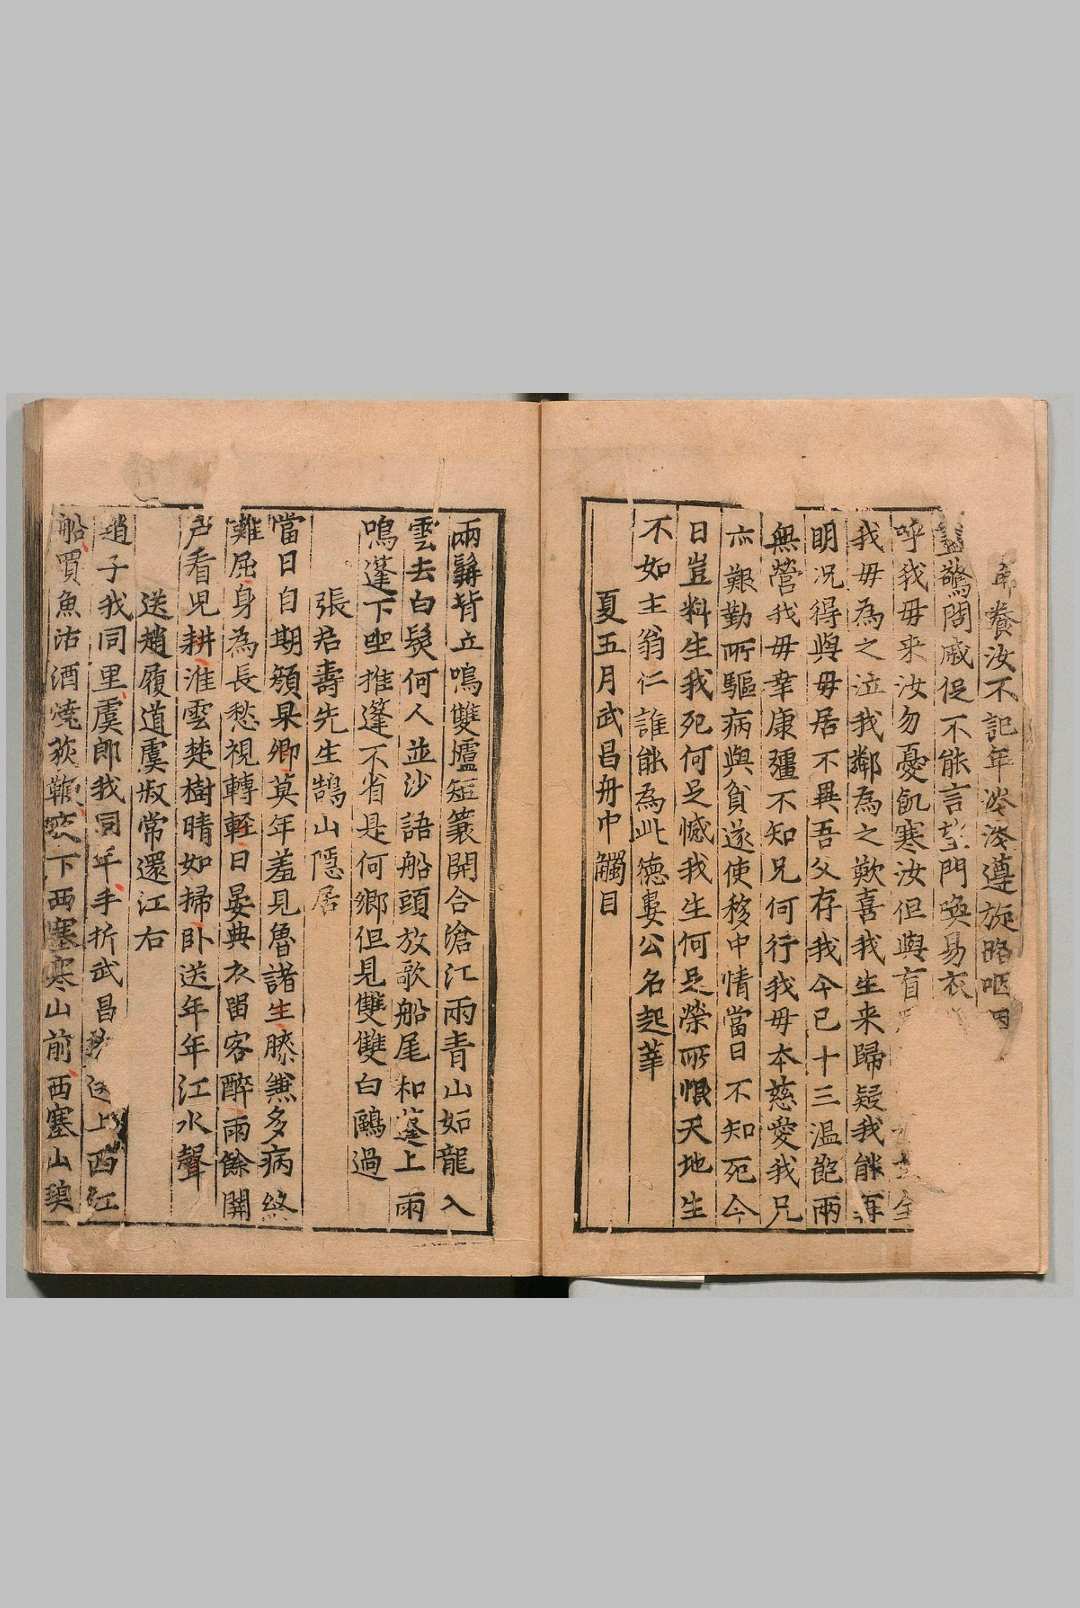 養汝不記年
驚問戚促不能言望門喚易衣
呼我毋来汝勿憂飢寒汝但與
我毋為之泣我鄰為之歎喜我生来歸疑我能再
明况得與毋居不異吾父存我今已十三温飽兩
無營我毋幸康彊不知兄何行我毋本慈愛我兄
亦艱勤所驅病與貧遂使移中情當日不知死今
日豈料生我死何足憾我生何足榮所恨天地生
不如主翁仁誰能為此德婁公名起莘
夏五月武昌舟中觸目
兩鬅背立鳴雙爐短篆開合滄江雨青山如龍入
雲去白髮何人並沙語船頭放歌船尾和蓬上雨
鳴蓬下坐推篷不省是何鄉但見雙雙白鷗過
張君壽先生鵠山隱居
當日自期頻杲卿莫年羞見魯諸生膝無多病終
難屈身為長愁視轉輕日晏典衣留客醉雨餘開
戸看児耕淮雲楚樹晴如掃卧送年年江水聲
送趙履道虞叔常還江右
趙子我同里虞郎我同年手折武昌 送上西江
船買魚沽酒燒荻 下西塞寒山前西塞山